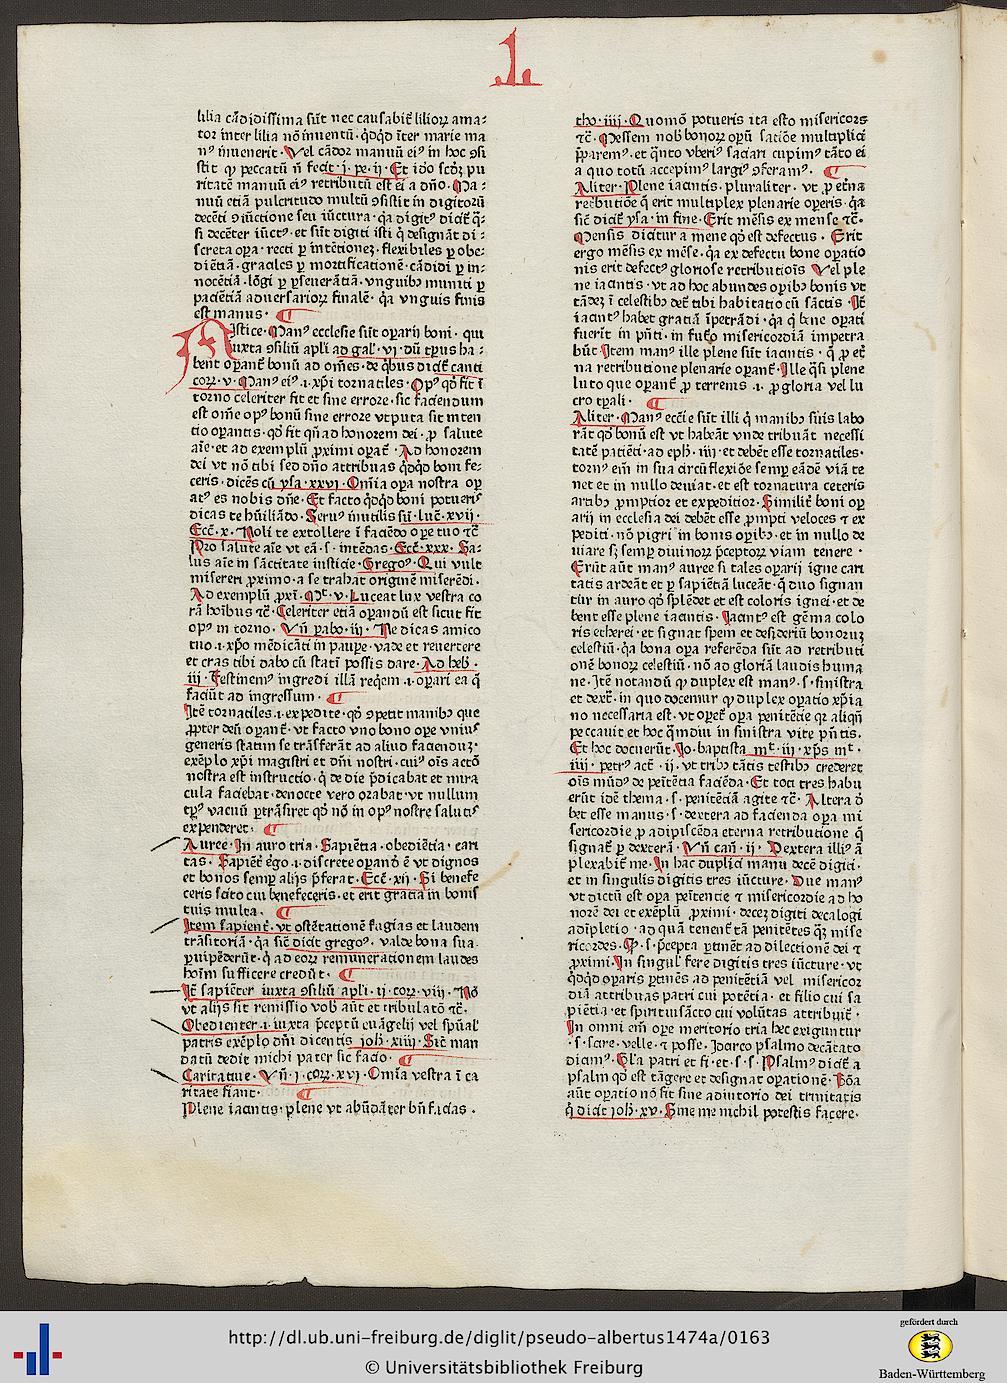 L
lilia cãdidissima sũt nec causabit̃ lilioꝝ ama⸗
tor inter lilia nõ inuentũ · q̇dq̇d ĩter marie ma
nꝰ inuenerit · Vel cãdor manuũ eiꝰ in hoc ꝯsi
stit ꝙ peccatũ ñ fecit · j · pe · ij · Et iđo scõꝝ pu
ritatẽ manuũ eiꝰ retributũ est ei a dño · Ma⸗
nuũ etiã pulcritudo multũ ꝯsistit in digitorũ
decẽti ꝯiũctione seu iũctura · q̇a digitꝰ dicit̃ q̃⸗
si decẽter iũctꝰ · et sũt digiti isti q̇ designãt di⸗
screta oꝑa · recti ꝑ intẽtionez · flexibiles ꝑ obe⸗
diẽtiã · graciles ꝑ mortificationẽ · cãdidi ꝑ in⸗
nocẽtiã · lõgi ꝑ ꝑseuerãtiã · vnguibꝰ muniti ꝑ
paciẽtiã aduersarioꝝ finalẽ · q̇a vnguis finis
est manus ·
Mistice · Manꝰ ecclesie sũt oꝑarij boni · qui
iuxta ꝯsiliũ apl̃i ad gal̃ · vj · dũ tꝑus ha⸗
bent oꝑant̃ bonũ ad om̃es · de q̇bus dicit̃ canti
coꝝ · v · Manꝰ eiꝰ · i · xp̃i tornatiles · Opꝰ qđ fit ĩ
torno celeriter fit et sine errore · sic faciendum
est om̃e opꝰ bonũ sine errore vtputa sit inten
tio oꝑantis · qđ fit qñ ad honorem dei · ꝓ salute
aĩe · et ad exemplũ ꝓximi oꝑat̃ · Ad honorem
dei vt nõ tibi sed dño attribuas q̇dq̇d boni fe⸗
ceris · dicẽs cũ ysa · xxvj · Om̃ia oꝑa nostra oꝑ
atꝰ es nobis dñe · Et facto q̇dq̇d boni potueris
dicas te hũiliãdo · Seruꝰ inutilis sũ · luc̃ · xvij ·
Ecc̃ · x · Noli te extollere ĩ faciẽdo oꝑe tuo ⁊c̃
Pro salute aĩe vt eã · s · intẽdas · Ecc̃ · xxx · Sa⸗
lus aĩe in sãctitate iusticie · Gregoꝰ · Qui vult
misereri ꝓximo · a se trahat originẽ miserẽdi ·
Ad exemplũ ꝓxĩ · Mt̃ · v · Luceat lux vestra co
rã hoĩbus ⁊c̃ · Celeriter etiã oꝑandũ est sicut fit
opꝰ in torno · Vñ ꝓabo · iij · Ne dicas amico
tuo · i · xp̃o mẽdicãti in pauꝑe · vade et reuertere
et cras tibi dabo cũ statĩ possis dare · Ad heb̃ ·
iij · Festinemꝰ ingredi illã req̇em · i · oꝑari ea q̃
faciũt ad ingressum ·
Itẽ tornatiles · i · expedite · qđ ꝯpetit manibꝰ que
ꝓpter deũ oꝑant̃ · vt facto vno bono oꝑe vniuꝰ
generis statim se trãsferãt ad aliud faciendũ ·
exẽplo xp̃i magistri et dñi nostri · cuiꝰ oĩs actõ
nostra est instructio · q̇ de die p̃dicabat et mira
cula faciebat · denocte vero oꝛabat · vt nullum
tꝑꝰ vacuũ ꝑtrãsiret qđ nõ in opꝰ nostre salutꝭ
expenderet ·
Auree · In auro tria · Sapiẽtia · obediẽtia · cari
tas · Sapiẽt̃ ego · i · discrete oꝑanđ ẽ vt dignos
et bonos semꝑ alijs p̃ferat · Ecc̃ · xij · Si benefe
ceris scito cui benefeceris · et erit gratia in bonis
tuis multa ·
Item sapient̃ · vt ostẽtationẽ fugias et laudem
trãsitoriã · q̇a sic̃ dicit gregoꝰ · valde bona sua
ꝑuipẽderũt · q̇ ad eoꝝ remunerationem laudes
hoĩm sufficere credũt ·
It̃ sapiẽter iuxta ꝯsiliũ apl̃i · ij · coꝝ · viij · Nõ
vt alijs sit remissio vob̃ aũt et tribulatõ ⁊c̃ ·
Obedienter · i · iuxta p̃ceptũ euãgelij vel spũal̃
patris exẽplo dñi dicentis ioh̃ · xiiij · Sic̃ man
datũ dedit michi pater sic facio ·
Caritatiue · Vñ · j · coꝝ · xvj · Om̃ia vestra ĩ ca
ritate fiant ·
Plene iacintis · plene vt abũdãter bñ facias ·
tho · iiij · Quomõ potueris ita esto misericors
⁊c̃ · Messem nob̃ bonoꝝ oꝑũ satiõe multiplici
p̃paremꝰ · et q̃nto vberiꝰ saciari cupimꝰ tãto ei
a quo totũ accepimꝰ largiꝰ ꝯferamꝰ ·
Aliter · Plene iacintis · pluraliter · vt ꝓ et̃na
retributiõe q̃ erit multiplex plenarie oꝑeris · q̇a
sic̃ dicit̃ ysa · in fine · Erit mẽsis ex mense ⁊c̃ ·
Mensis dicitur a mene qđ est defectus · Erit
ergo mẽsis ex mẽse · q̇a ex defectu bone oꝑatio
nis erit defectꝰ gloriose retributiõis Vel ple
ne iacintis · vt ad hoc abundes oꝑibꝰ bonis vt
tãdeꝫ ĩ celestibꝰ det̃ tibi habitatio cũ sãctis · It̃
iacintꝰ habet gratiã ĩpetrãdi · q̇a q̇ bene oꝑati
fuerit in pñti · in futuro misericordiã impetra
bũt · Item manꝰ ille plene sũt iacintis · q̃ ꝓ et̃
na retributione plenarie oꝑant̃ · Ille q̃si plene
luto que oꝑant̃ ꝓ terrenis · i · ꝓ gloria vel lu
cro tꝑali ·
Aliter · Manꝰ ecc̃ie sũt illi q̇ manibꝰ suis labo
rãt qđ bonũ est vt habeãt vnde tribuãt necessi
tatẽ patiẽti · ad eph̃ · iiij · et debẽt esse tornatiles ·
tornꝰ eñi in sua circũflexiõe semꝑ eãdẽ viã te
net et in nullo deuiat · et est tornatura ceteris
artibꝰ ꝓmptior et expeditior · Similit̃ boni oꝑ
arij in ecclesia dei debẽt esse ꝓmpti veloces ⁊ ex
pediti · nõ pigri in bonis oꝑibꝰ · et in nullo de
uiare sꝫ semꝑ diuinoꝝ p̃ceptoꝝ viam tenere ·
Erũt aũt manꝰ auree si tales oꝑarij igne cari
tatis ardeãt et ꝑ sapiẽtiã luceãt · q̃ duo signan
tur in auro qđ splẽdet et est coloris ignei · et de
bent esse plene iacintis · Iacintꝰ est gẽma colo
ris etherei · et signat spem et desideriũ bonoꝝ
celestiũ · q̇a bona oꝑa referẽda sũt ad retributi
onẽ bonoꝝ celestiũ · nõ ad gloriã laudis huma
ne · Itẽ notandũ ꝙ duplex est manꝰ · s · sinistra
et dext̃ · in quo docemur ꝙ duplex oꝑatio xp̃ia
no necessaria est · vt oꝑet̃ oꝑa penitẽtie qꝛ aliqñ
peccauit et hoc q̇mdiu in sinistra vite p̃ntis ·
Et hoc docuerũt · Io · baptista mt̃ · iij · xp̃s mt̃ ·
iiij · petrꝰ act̃ · ij · vt tribꝰ tãtis testibꝰ crederet
oĩs mũdꝰ de peĩtẽtia faciẽda · Et toti tres habu
erũt idẽ thema · s · penitẽciã agite ⁊c̃ · Altera đ
bet esse manus · s · dextera ad facienda oꝑa mi
sericordie ꝓ adipiscẽda eterna retributione q̃
signat̃ ꝑ dexterã · Vñ can̄ · ij · Dextera illiꝰ ã
plexabit̃ me · In hac duplici manu decẽ digiti ·
et in singulis digitis tres iũcture · Due manꝰ
vt dictũ est oꝑa peĩtentie ⁊ misericordie ad ho
norẽ dei et exẽplũ ꝓximi · decez digiti decalogi
adĩpletio · ad quã tenent̃ tã penitẽtes q̃ꝫ mise
ricordes · Qꝛ · s · p̃cepta ꝑtinẽt ad dilectionẽ dei ⁊
ꝓximi · In singul̃ fere digitis tres iũcture · vt
q̇dq̇d oꝑaris ꝑtinẽs ad penitẽtiã vel misericor
diã attribuas patri cui potẽtia · et filio cui sa
piẽtia · et spirituisãcto cui volũtas attribuit̃ ·
In omni em̃ oꝑe meritorio tria hec exiguntur
· s · scire · velle · ⁊ posse · Idarco psalmo decãtato
dicamꝰ · Gl̃a patri et fi · et · s · s · Psalmꝰ dicit̃ a
psalm qđ est tãgere et designat oꝑationẽ · Bõa
aũt oꝑatio nõ fit sine adiutorio dei trinitatis
q̇ dicit ioh̃ · xv · Sine me nichil potestis facere ·
http://dl.ub.uni-freiburg.de/diglit/pseudo-albertus1474a/0163
© Universitätsbibliothek Freiburg
gefördert durch
Baden-Württemberg